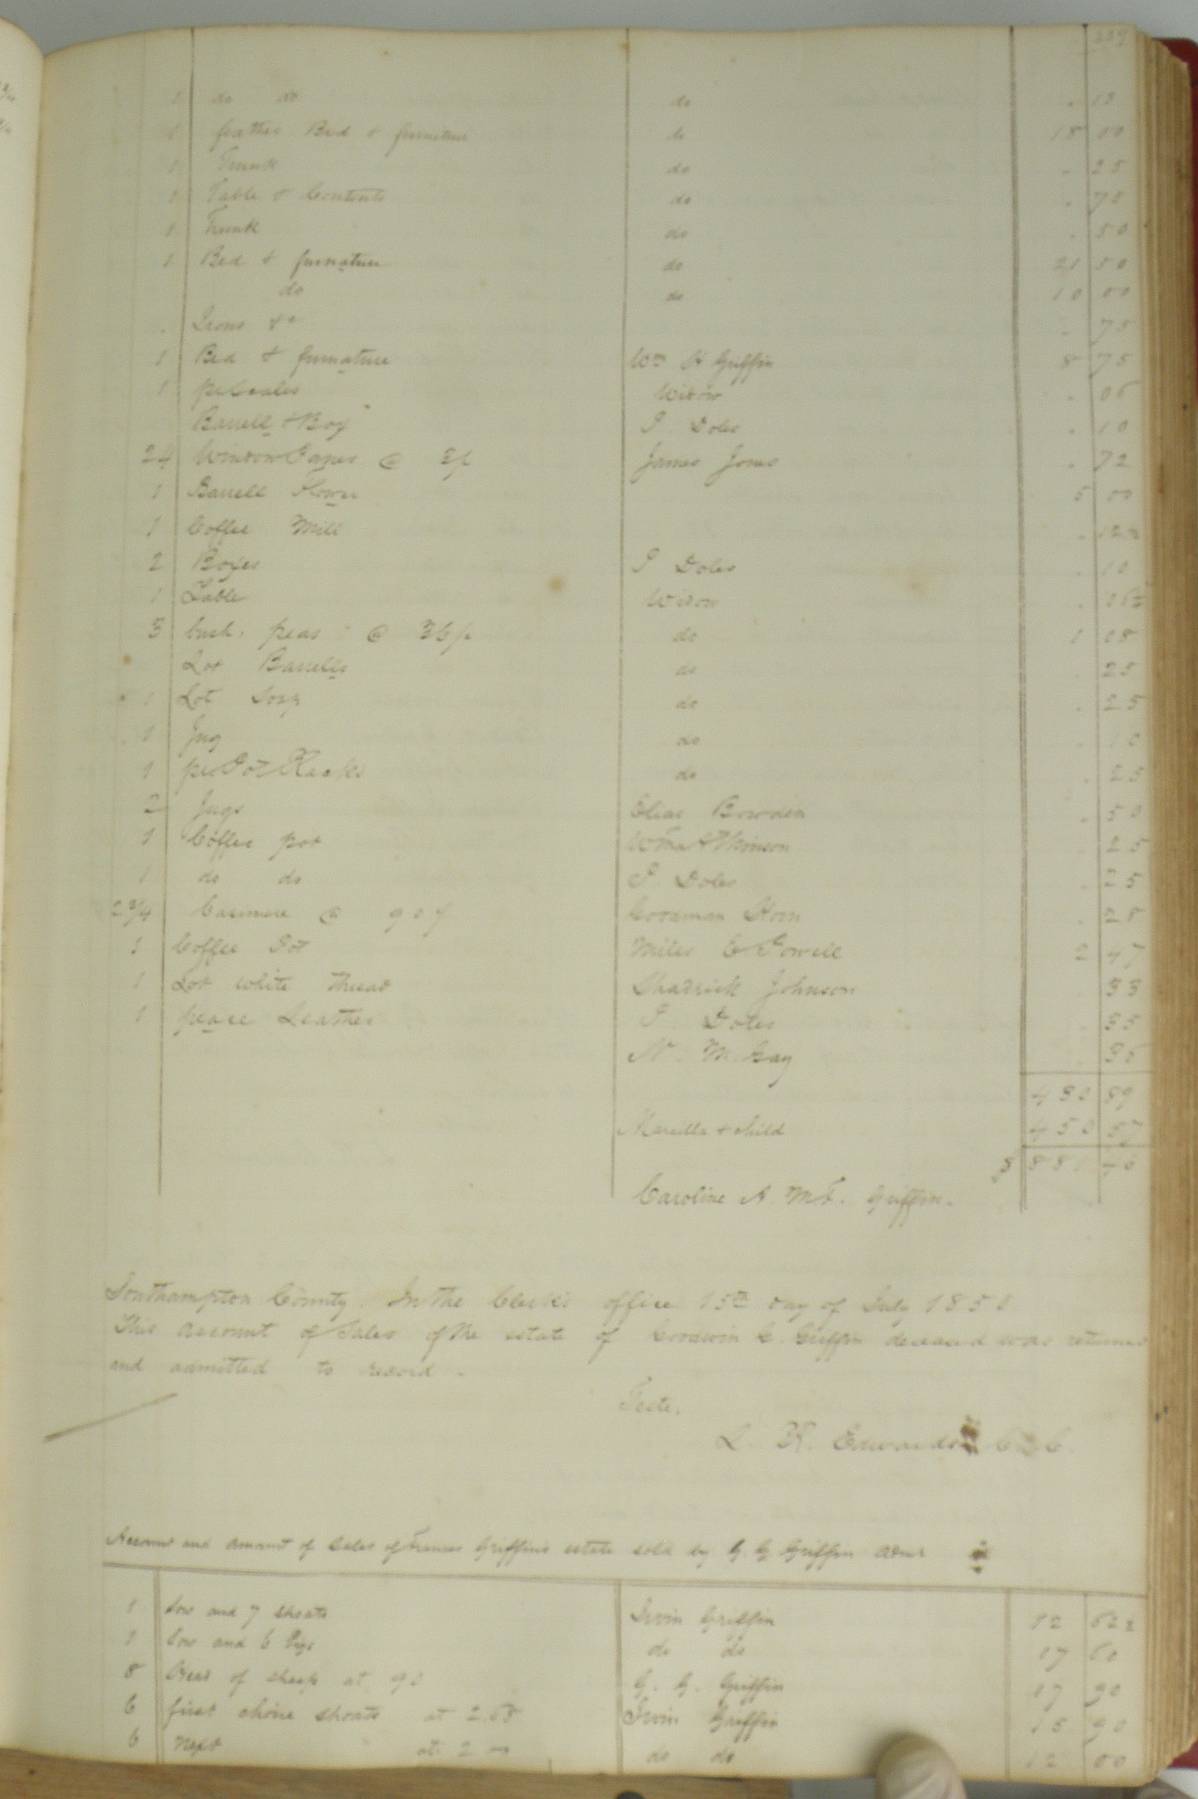 1 do do do . 10
1 feather Bed & furniture do 18 00
1 Trunk do . 25
1 Table & Contents do . 75
1 Trunk do . 50
1 Bed & furnature do 21 50
do do 10 00
Irons &c . 75
1 Bed & furnature Wm H Griffin 8 75
1 pr Widow . 06
Barrell & Box J. Doles . 10
24 Window Panes @ 3/ James Jones . 72
1 Barrell 5 00
1 Coffee Mill . 12½
2 Boxes J Doles . 10
1 Table Widow . 06¼
3 bush. peas @ 36/ do 1 08
Lot Barrells do . 25
1 Lot Soap do . 25
1 Jug do . 10
1 pr Pot Racks do . 25
2 Jugs Elias Bowden . 50
1 Coffee pot Wm Atkinson . 25
1 do do J. Doles . 25
2¾ Casimere @ 90 . 28
1 Coffee Pot Miles C Powell 2 47
1 Lot white thread Shadrick Johnson 33
1 peace Leather J Doles . 35
N. McKay . 35
430 89
& child 450 57
$ 881 46
Caroline A. M. F. Griffin.
Southampton County. In the Clerk's office 15th day of July 1850
This account of Sales of the estate of Goodwin G. Griffin deceased was returned
and admitted to record.
Teste,
L. R. Edwards C C.
Account and amount of Sales of Frances Griffin's estate sold by G. G. Griffin admr
1 Sow and 7 shoats Irvin Griffin 12 62½
1 Sow and 6 Pigs do do 17 60
8 Head of sheep at 90 G. G. Griffin 17 90
6 first choice shoats at 2.65 Irvin Griffin 15 90
6 next at 2 do do 12 00